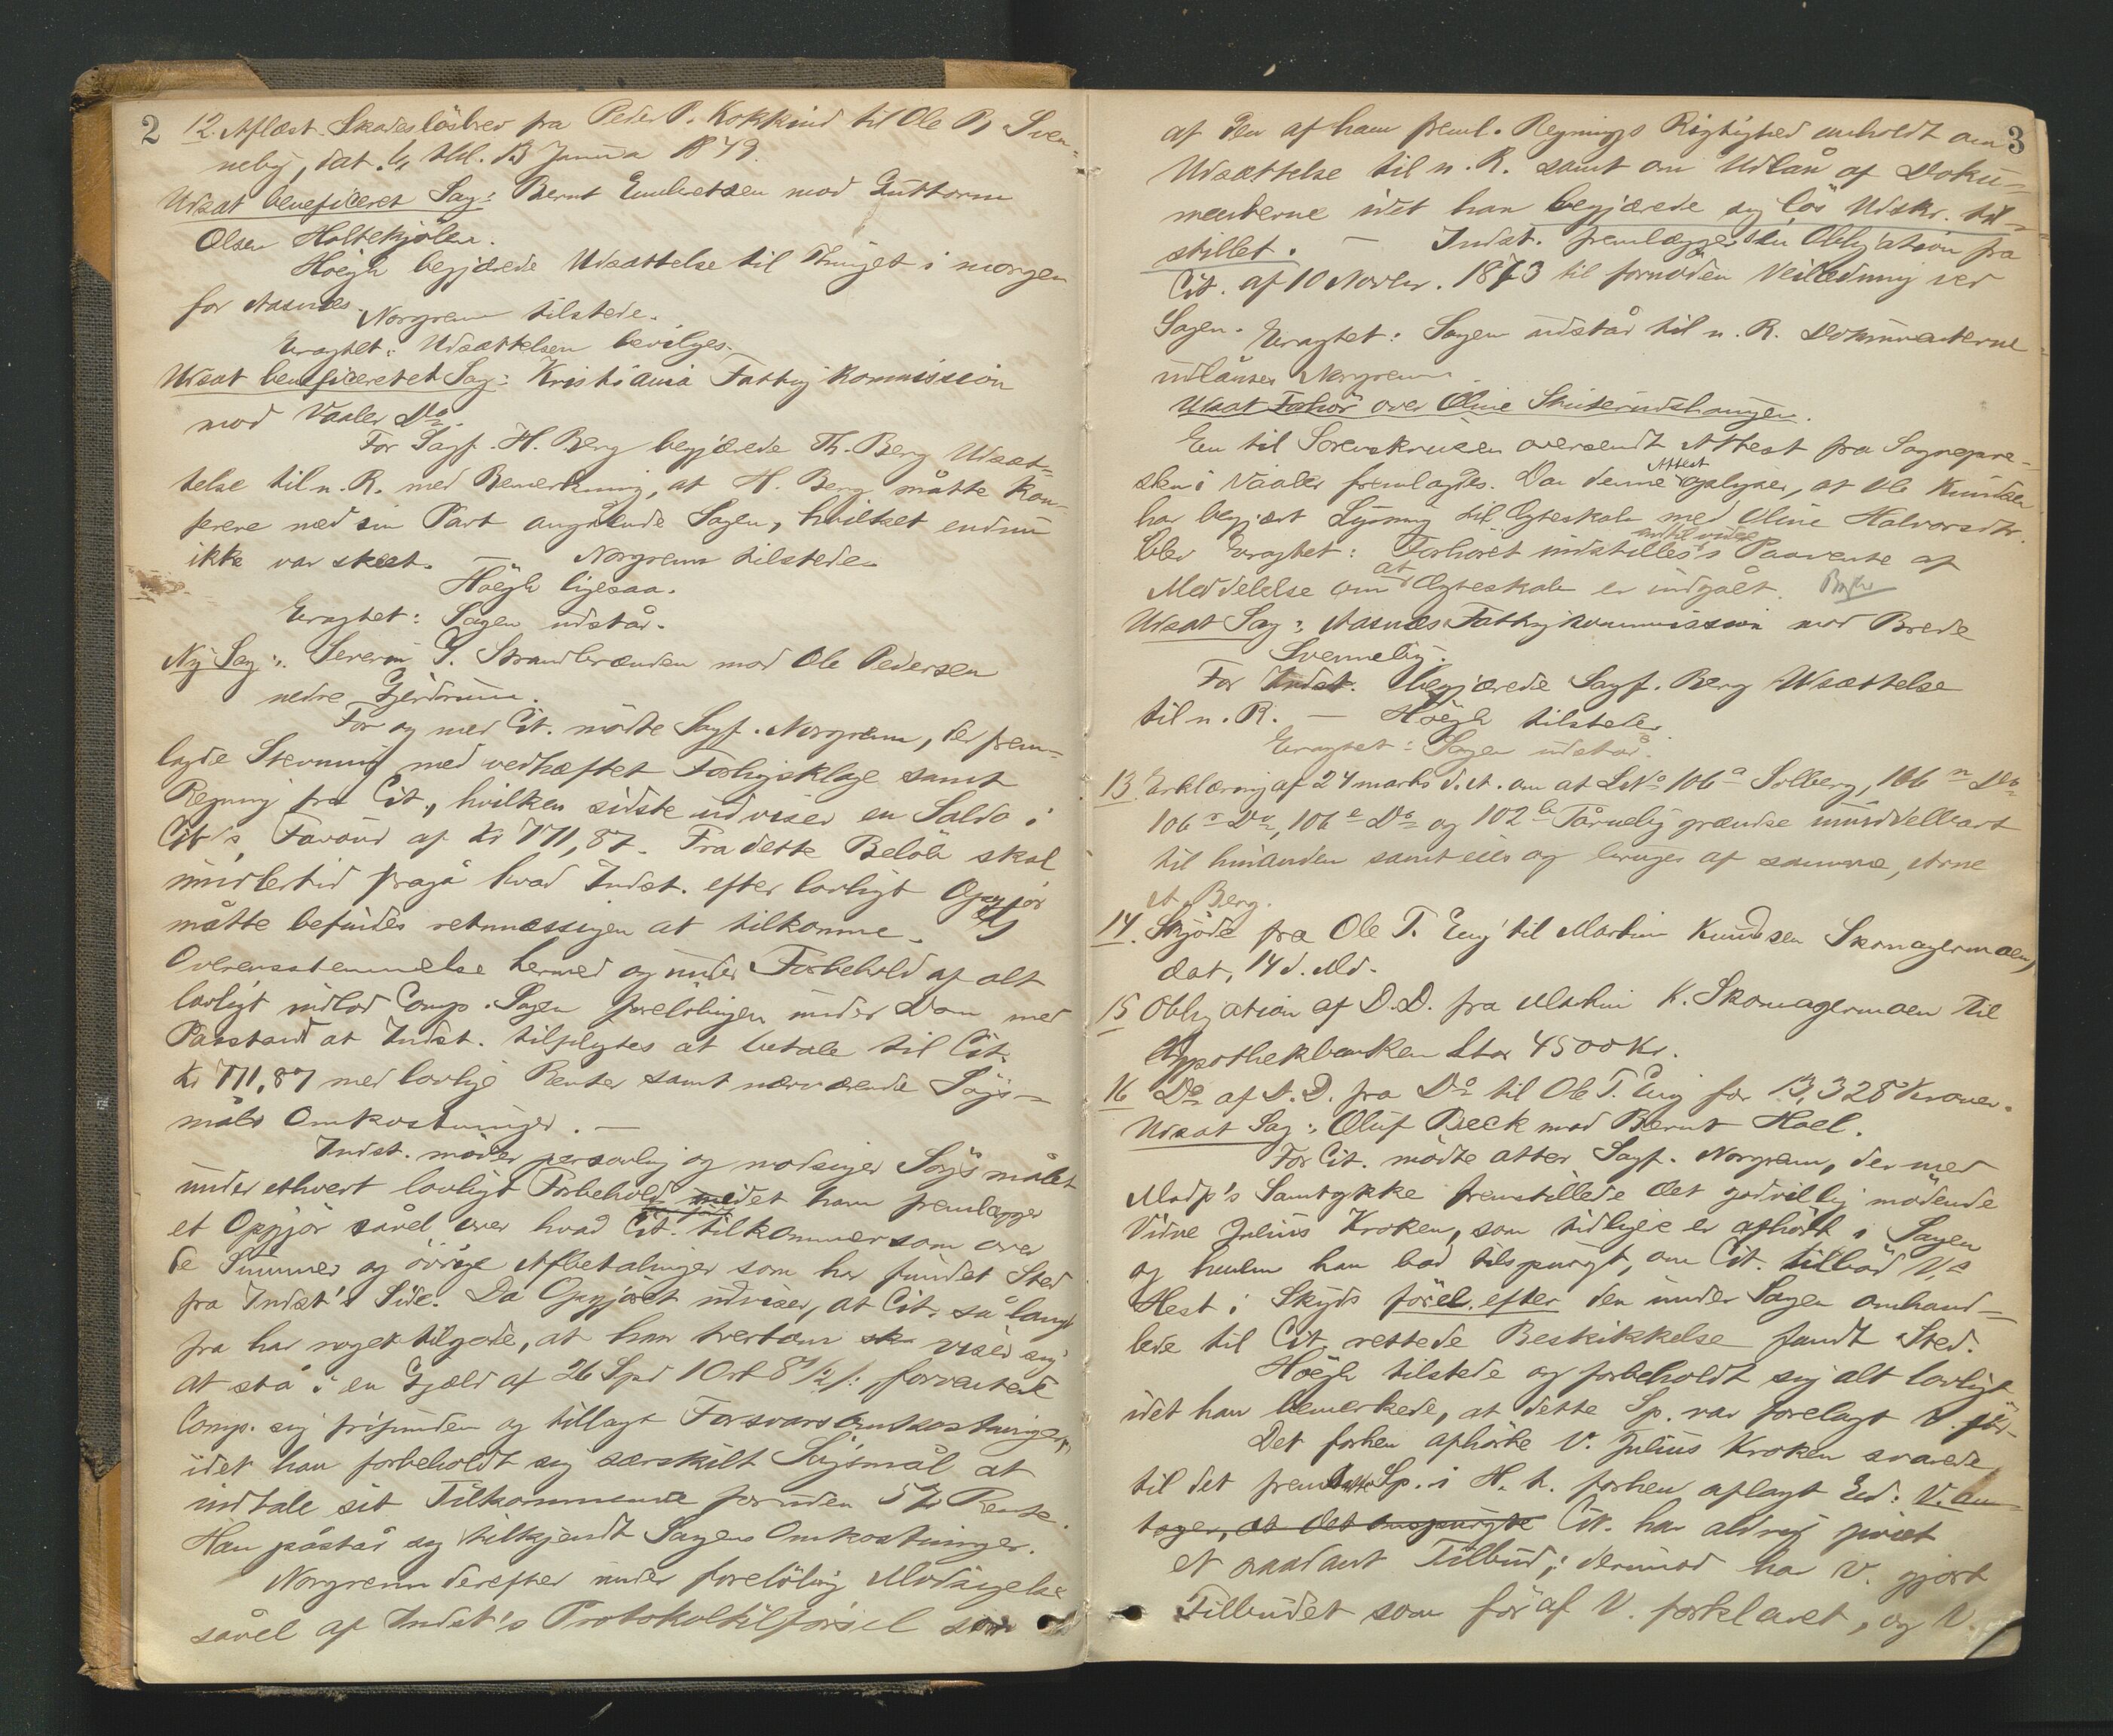 2
12. Aflæst Skadesløsbrev fra Peder P. Kokkind til Ole P. Sven-
neby, dat. 13 Januar 1879.
Udsat beneficeret Sag: Bernt Embretsen mod Guttorm
Olsen Holtekjölen.
Höegh begjærede Udsættelse til Thinget i morgen
for Aasnes.
Norgrenn tilstede.
Eragtet: Udsættelsen bevilges.
Udsat beneficeretet Sag: Kristiania Fattigkommission
mod Vaaler Do.
For Sagf. H. Berg begjærede Th. Berg Udsæt-
telse til n. R. med Bemerkning, at H. Berg måtte kon-
ferere med sin Part angående Sagen, hvilket endnu
ikke var skeet. — Norgrenn tilstede.
Höegh ligesaa.
Eragtet: Sagen udstår.
Ny Sag: Severin G. Strandbrænden mod Ole Pedersen
nedre Gjerdrum.
For og med Cit. mödte Sagf. Norgrenn, der frem-
lagde Stevning med vedhæftet Forligsklage samt
Regning fra Cit., hvilken sidste udviser en Saldo i
Cit's Favör af Kr 771,87. Fra dette Belöb skal
imidlertid fragå hvad Indst. efter lovligt Opgjör
måtte befindes retmæssigen at tilkomme.
Overensstemmelse hermed og under Forbehold af alt
lovligt indlod Comp. Sagen foreløbigen under Dom med
Paastand at Indst. tilpligtes at betale til Cit.
Kr 771,87 med lovlige Renter samt nærværende Sögs-
måls Omkostninger. —
Indst. möder personlig og modsiger Sögsmålet
under ethvert lovligt Forbehold idet han fremlægger
et Opgjör såvel over hvad Cit. tilkommer som over
de Summer og övrige Afbetalinger som har fundet Sted
fra Indst's Side. Da Opgjöret udviser, at Cit. så langt
fra har noget tilgode, at han tvertom viser sig
at stå i en Gjæld af 26 Spd 1 Ort 8 1/2 s: forventede
Comp. sig frifunden og tillagt Forsvarsomkostninger,
idet han forbeholdt sig særskilt Sögsmål at
indtale sit Tilkommende foruden 5 % Rente.
Han påstår sig tilkjendt Sagens Omkostninger.
Norgrenn derefter under forelöbig Modsigelse
såvel af Indst's Protokoltilförsel som
3
af den af ham freml. Regnings Rigtighed anholdt om
Udsættelse til n. R. samt om Udlån af Doku-
menterne idet han begjærede sig lös Udskr. til-
stillet. — Indst. fremlægger en Obligation fra
Cit. af 10 Novbr. 1873 til fornöden Veiledning ved
Sagen. Eragtet: Sagen udstår til n. R. Dokumenterne
udlånes Norgrenn.
Udsat Forhör over Oline Skuterudshaugen.
En til Sorenskriveren oversendt Attest fra Sognepre-
sten i Vaaler fremlagdes. Da denne Attest oplyser, at Ole Knudsen
har begjært Lysning til Ægteskab med Oline Halvorsdtr.
blev Eragtet: Forhöret indstilles indtil videre i Paavente af
Meddelelse om at Ægteskab er indgået.
Udsat Sag: Aasnes Fattigkommission mod Brede
Svenneby.
For Indst. begjærede Sagf. Berg Udsættelse
til n. R. — Höegh tilstede.
Eragtet: Sagen udstår.
13. Erklæring af 24 marts d. A. om at L No 106 a Solberg, 106 n Do
106 Do, 106 e Do og 102 b Tårneby grændse umiddelbart
til hinanden samt eies og bruges af samme, Arne
A. Berg.
14. Skjöde fra Ole T. Eng til Martin Knudsen Skomagermoen,
dat. 14 d. Md.
15 Obligation af D. D. fra Martin K. Skomagermoen til
Hypothekbanken stor 4500 Kr.
16 Do af D. D. fra Do til Ole T. Eng for 13,328 Kroner.
Udsat Sag: Oluf Beck mod Bernt Hoel.
For Cit. mödte atter Sagf. Norgrenn, der med
Modp's Samtykke fremstillede det godvillig mödende
Vidne Julius Kroken, som tidligere er afhört i Sagen
og hvem han bad tilspurgt, om Cit. tilböd V.s
Hest i Skyds för el. efter den under Sagen omhand-
lede til Cit. rettede Beskikkelse fandt Sted.
Höegh tilstede og forbeholdt sig alt lovligt
idet han bemerkede, at dette Sp. var forelagt V. för.
Det forhen afhörte V. Julius Kroken svarede
til det fremsatte Sp. i H. t. forhen aflagt Ed: V. an-
tager, at det omspurgte Cit. har aldrig givet
et saadant Tilbud; derimod har V. gjort
Tilbudet som för af V. forklaret, og V.